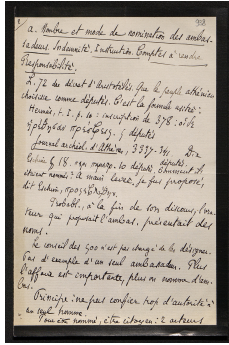 938
a. Nombre et mode de nomination des ambas-
sadeurs. Indemnité. Instruction. Comptes à rendre
Responsabilité.
L. 72 du décret d'Aristotélès que le peuple athénien
choisisse comme députés. C'est la formule usitée :
Hermès, t. I. p. 10 : inscription de 378 :
πρέσβεις. députés
Journal archéol. d'Athènes,
Eschin. § 18. 10 députés,
étaient nommés à main levée, je fus proposé,
dit Eschin,
Probabl. à la fin de son discours, l'ora-
teur qui proposait l'ambas. présentait des
noms.
Le conseil des 500 n'est pas chargé de les désigner
Pas d'exemple d'un seul ambassadeur. Plus
l'affaire est importante, plus on nomme d'am-
bas.
Principe : ne pas confier trop d'autorité à
un seul homme.
Pour être nommé, être citoyen : 2 acteurs